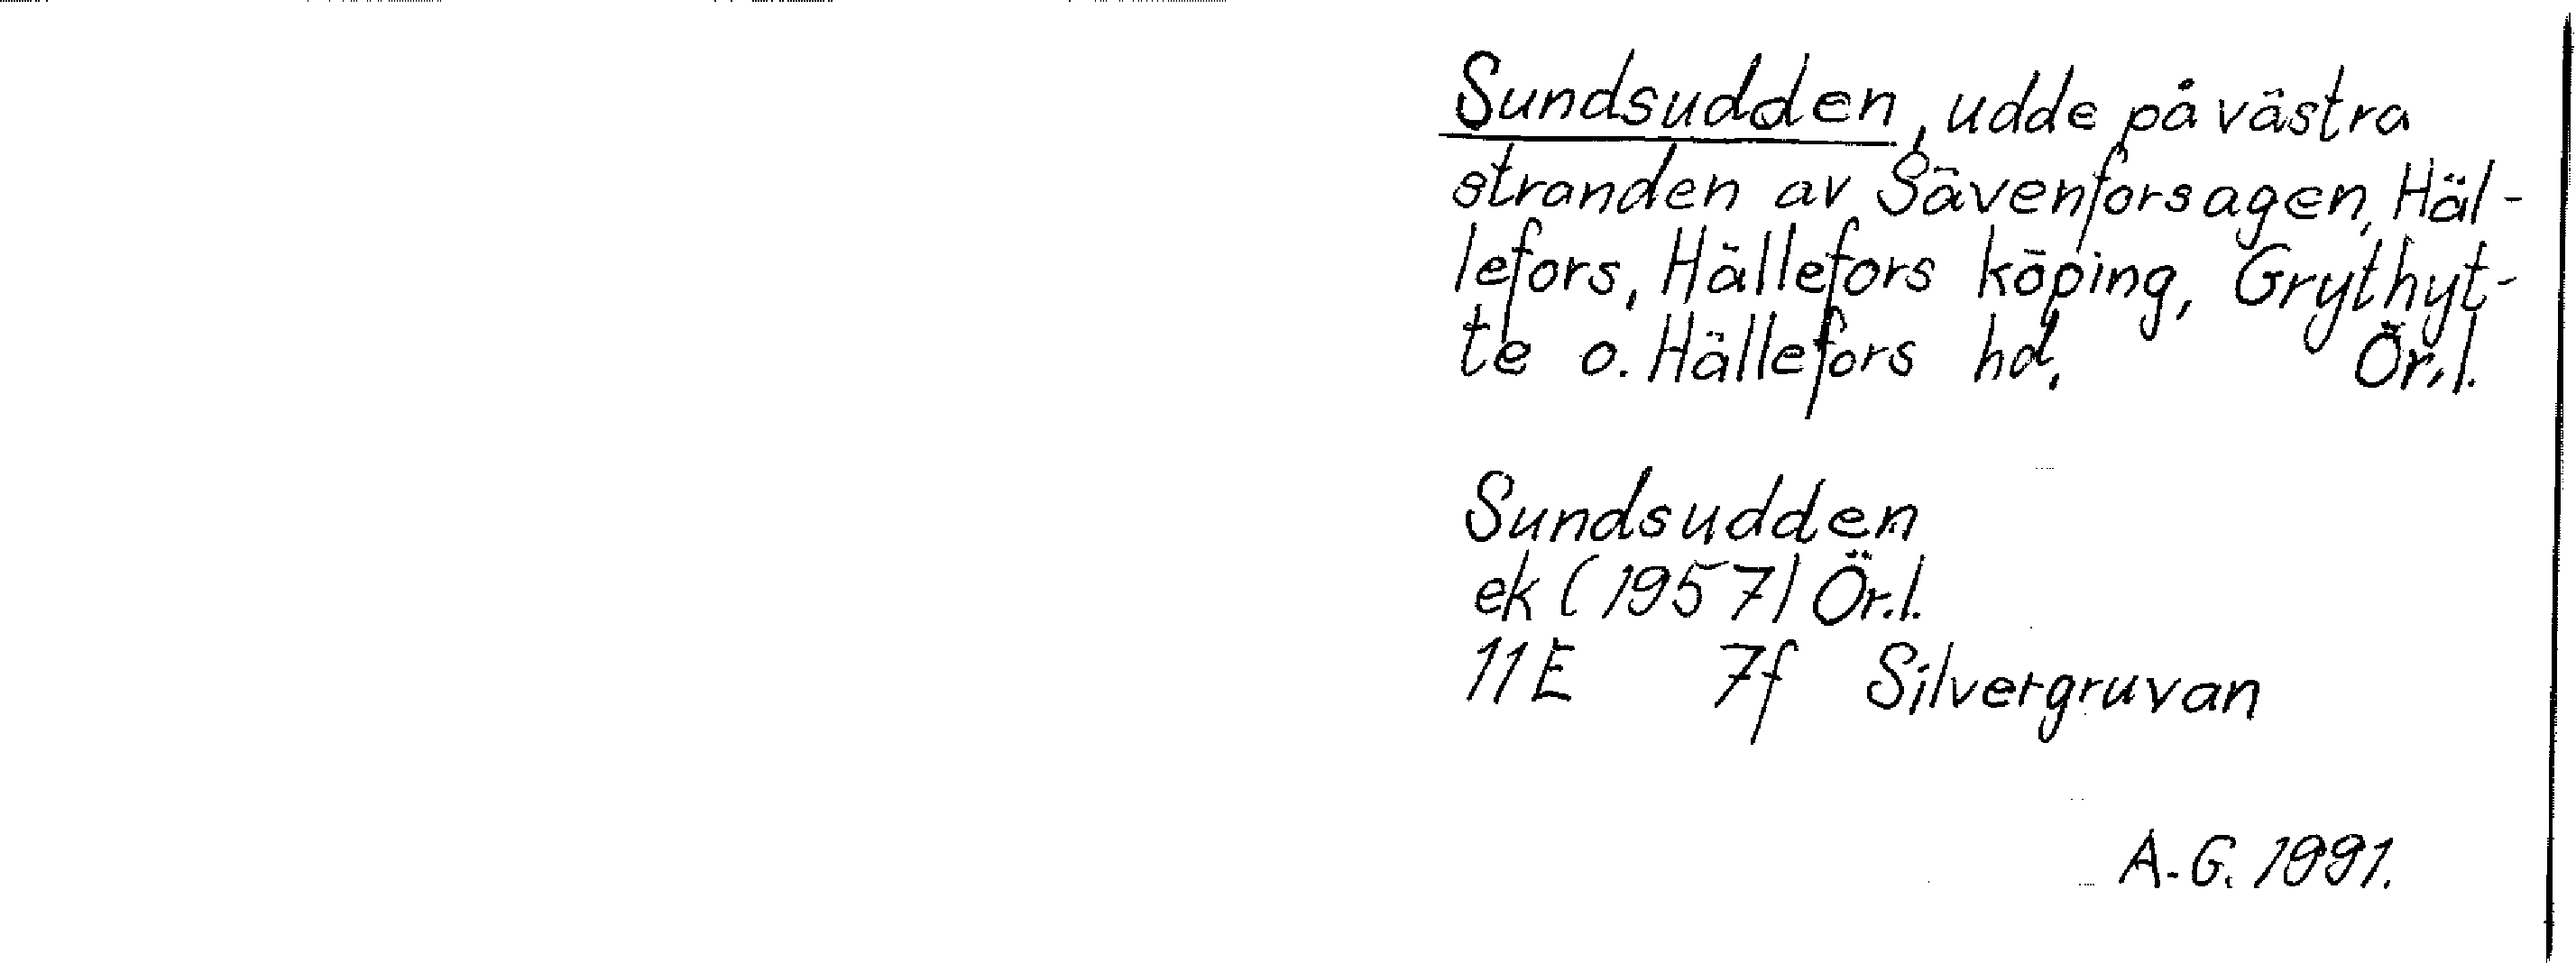 Sundsudden, udde på västra
stranden av Sävenforsagen, Häl-
lefors, Hällefors köping, Grythyt-
te o. Hällefors hd. Ör.l.
Sundsudden
ek (1957) Ör.l.
11E 7f Silvergruvan
A-G. 1991.